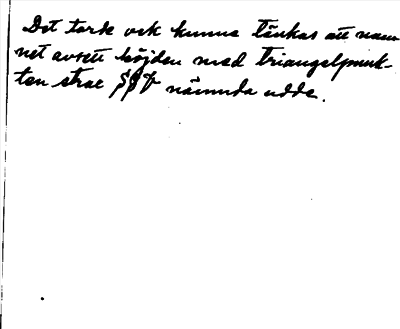 Det torde ock kunna tänkas att nam-
net avsett höjden med triangelpunk-
ten strax SSV nämnda udde.